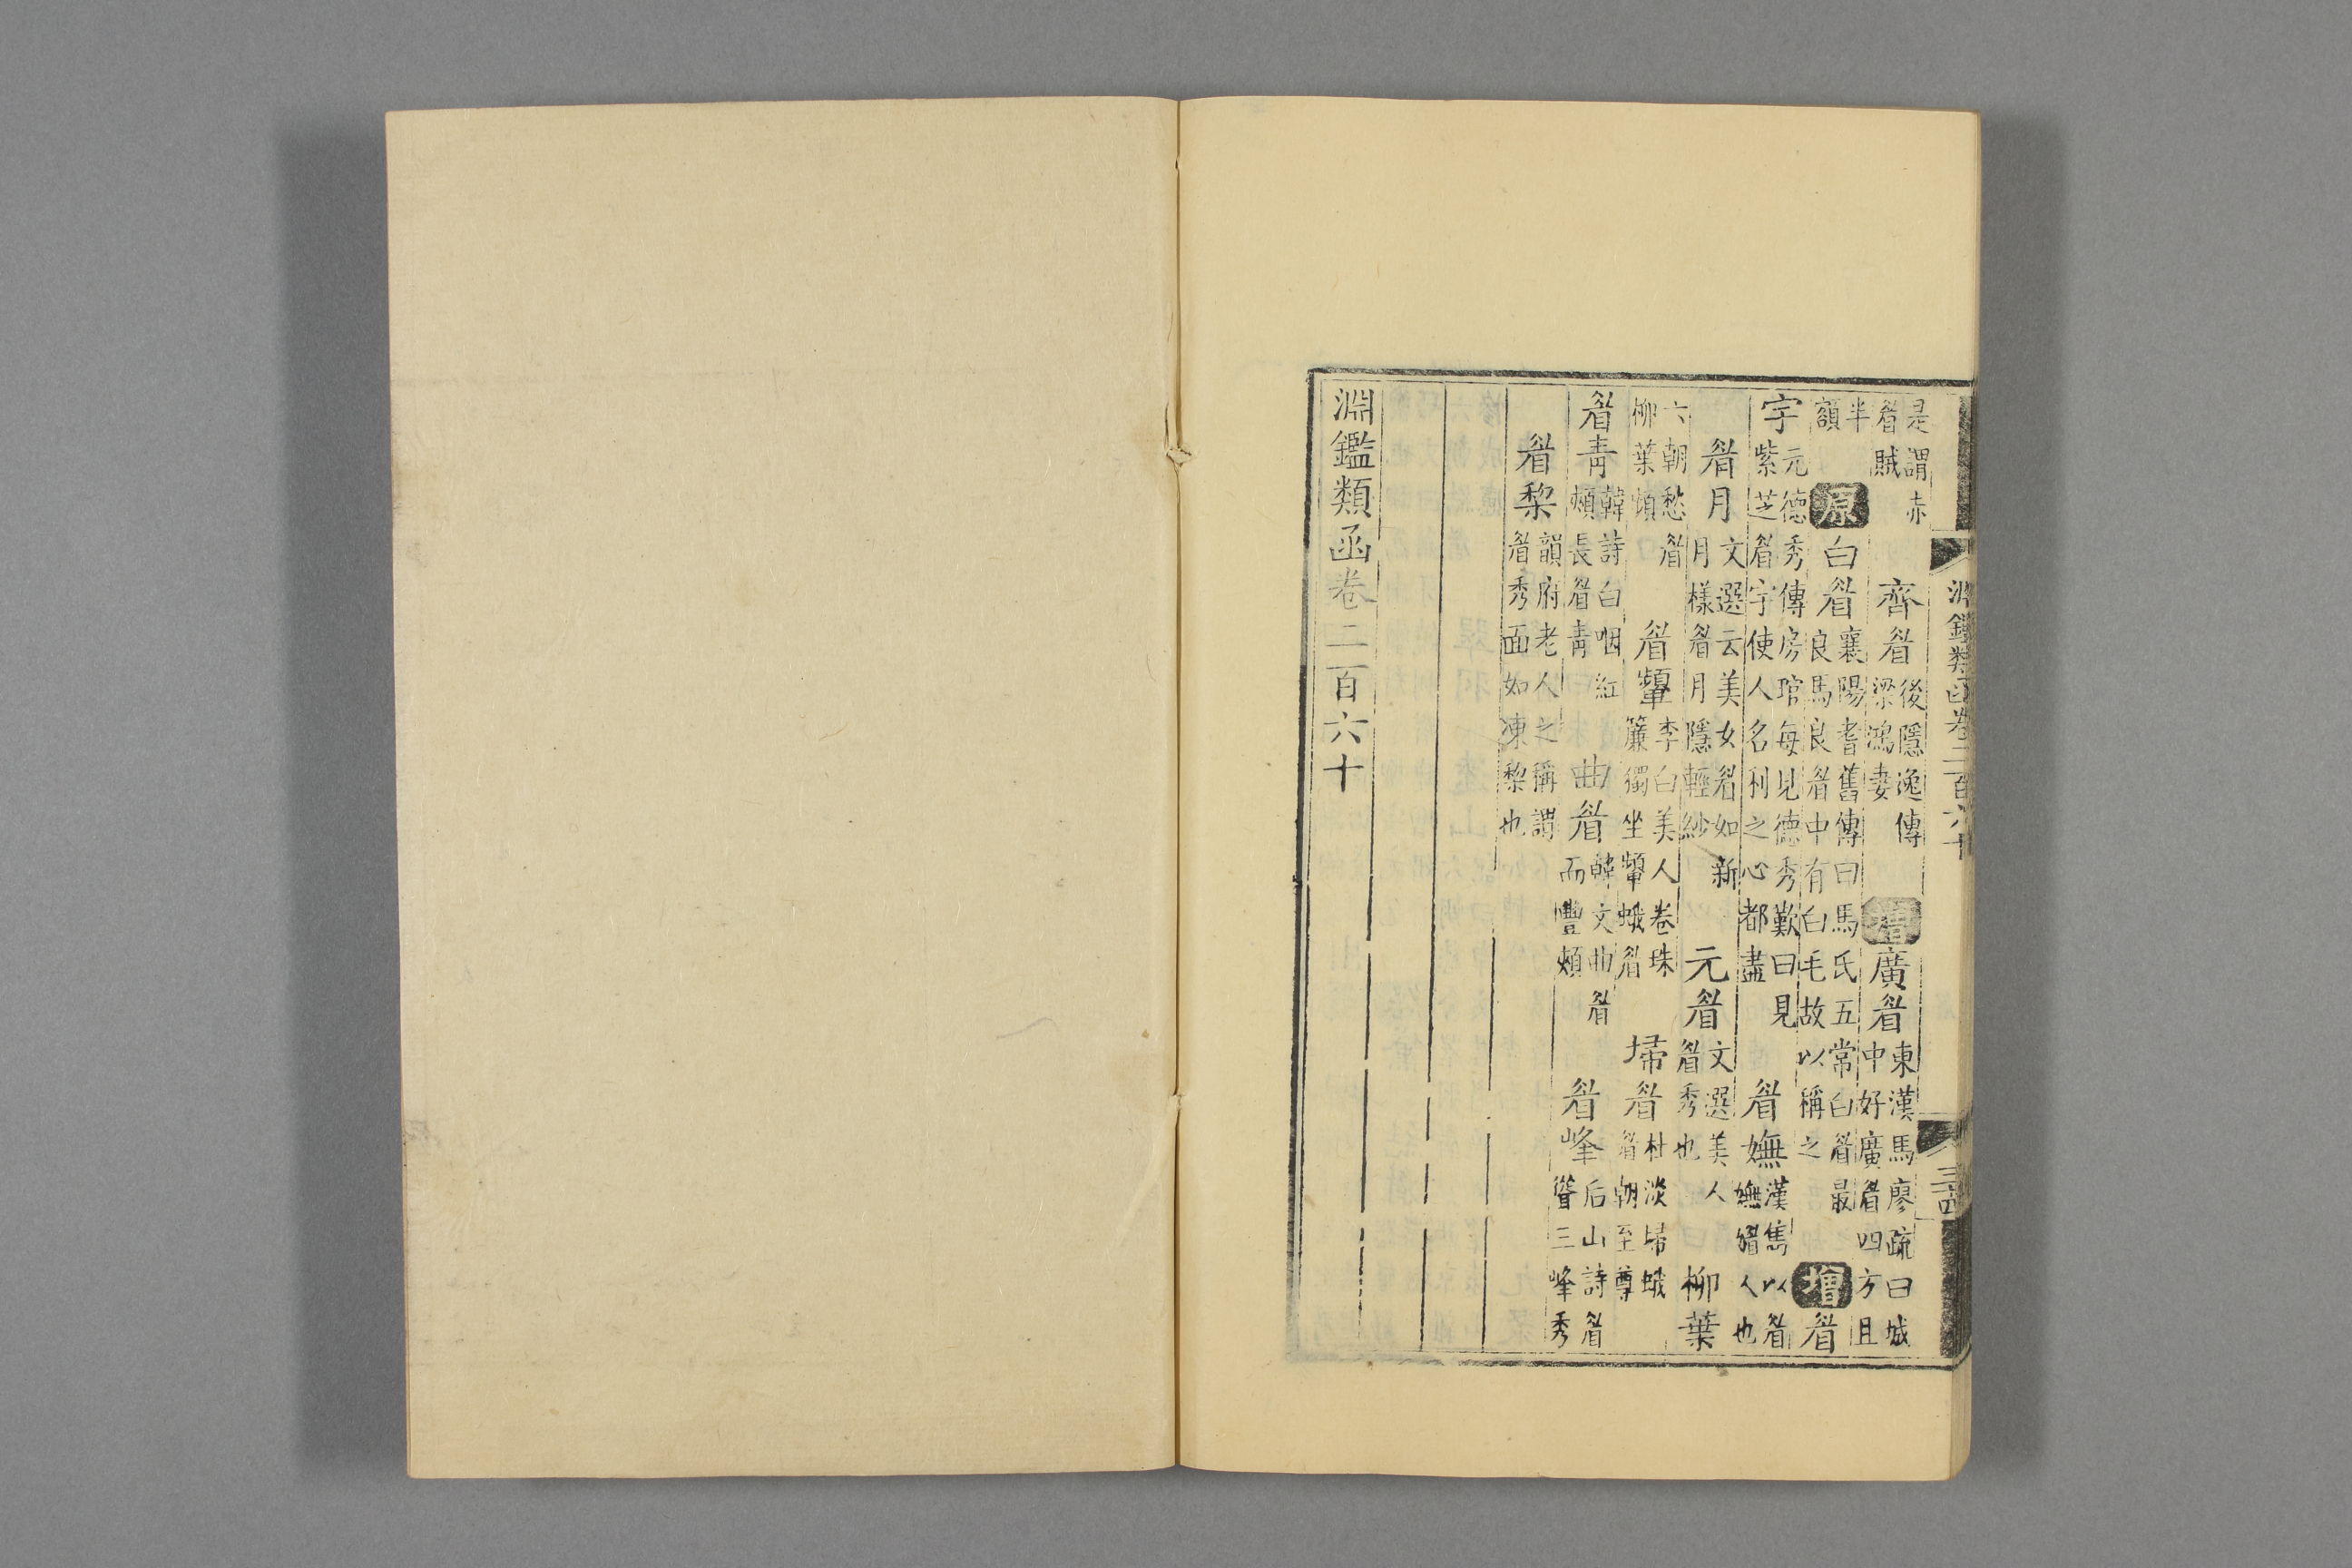 淵鑑類函卷二百六十 三四
是謂赤眉賊 齊眉 後隱逸傳梁鴻妻 增 廣眉 東漢馬廖疏曰城中好廣眉四方且
半額 原 白眉 襄陽耆舊傳曰馬氏五常白眉最良馬良眉中有白毛故以稱之 增 眉
宇 元德秀傳房琯每見德秀歎曰見紫芝眉宇使人名利之心都盡 眉嫵 漢雋以眉嫵媚人也
眉月 文選云美女眉如新月樣眉月隱輕紗 元眉 文選美人眉秀也 柳葉
六朝愁眉柳葉頻 眉顰 李白美人卷珠簾獨坐顰蛾眉 埽眉 杜淡埽蛾眉朝至尊
眉青 韓詩白咽紅頰長眉青 曲眉 韓文曲眉而豐頰 眉峰 后山詩眉聳三峰秀
眉梨 韻府老人之稱謂眉秀面如凍梨也
淵鑑類函卷二百六十